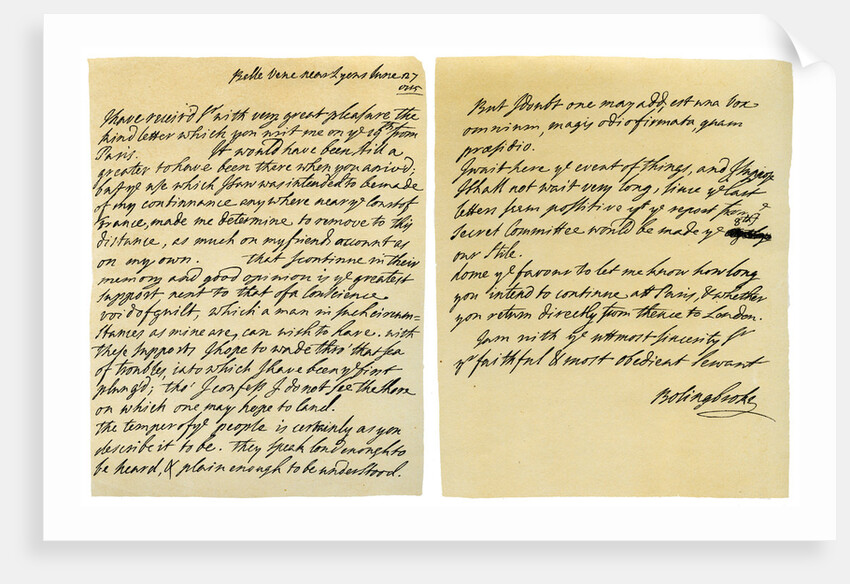 Belle Vene near Lyons June 27
I have receiv'd Sr with very great pleasure the
kind letter which you writ me on ye 19th from
Paris. It would have been still a
greater to have been there when you arriv'd;
but ye use which I saw was intended to be made
of my continuance any where near ye Coast of
France, made me determine to remove to this
distance, as much on my friends account as
on my own. That I continue in their
memory and good opinion is ye greatest
support next to that of a Conscience
void of guilt, which a man in such circum=
stances as mine are, can wish to have. with
these supports I hope to wade thro' that sea
of troubles, into which I have been ye first
plung'd; tho' I confess I do not see the shore
on which one may hope to land.
the temper of ye people is certainly as you
describe it to be. They speak loud enough to
be heard, & plain enough to be understood.
But I doubt one may add, est una vox
omnium, magis odio firmata, quam
præsidio.
I wait here ye event of things, and I
I shall not wait very long, since ye last
letters seem possitive yt ye report from ye
8th
Secret Committee would be made ye
our Stile.
do me ye favour to let me know how long
you intend to continue att Paris, & whether
you return directly from thence to London.
I am with ye uttmost sincerity Sr
yr faithful & most obedient servant
Bolingbroke